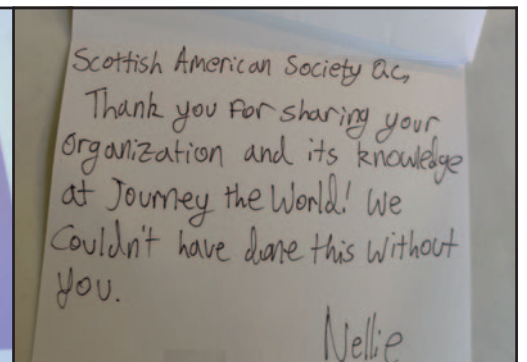 Scottish American Society QC,
Thank you for sharing your
Organization and its knowledge
at Journey the World! We
Couldn't have done this without
You.
Nellie